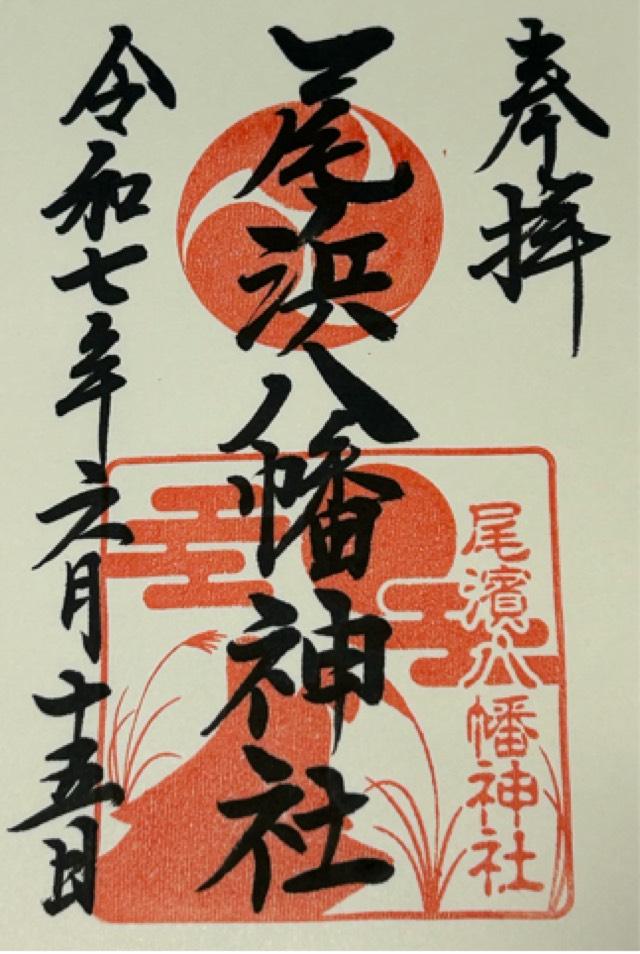 奉拝
尾浜八幡神社
令和七年六月十五日
尾濱八幡神社